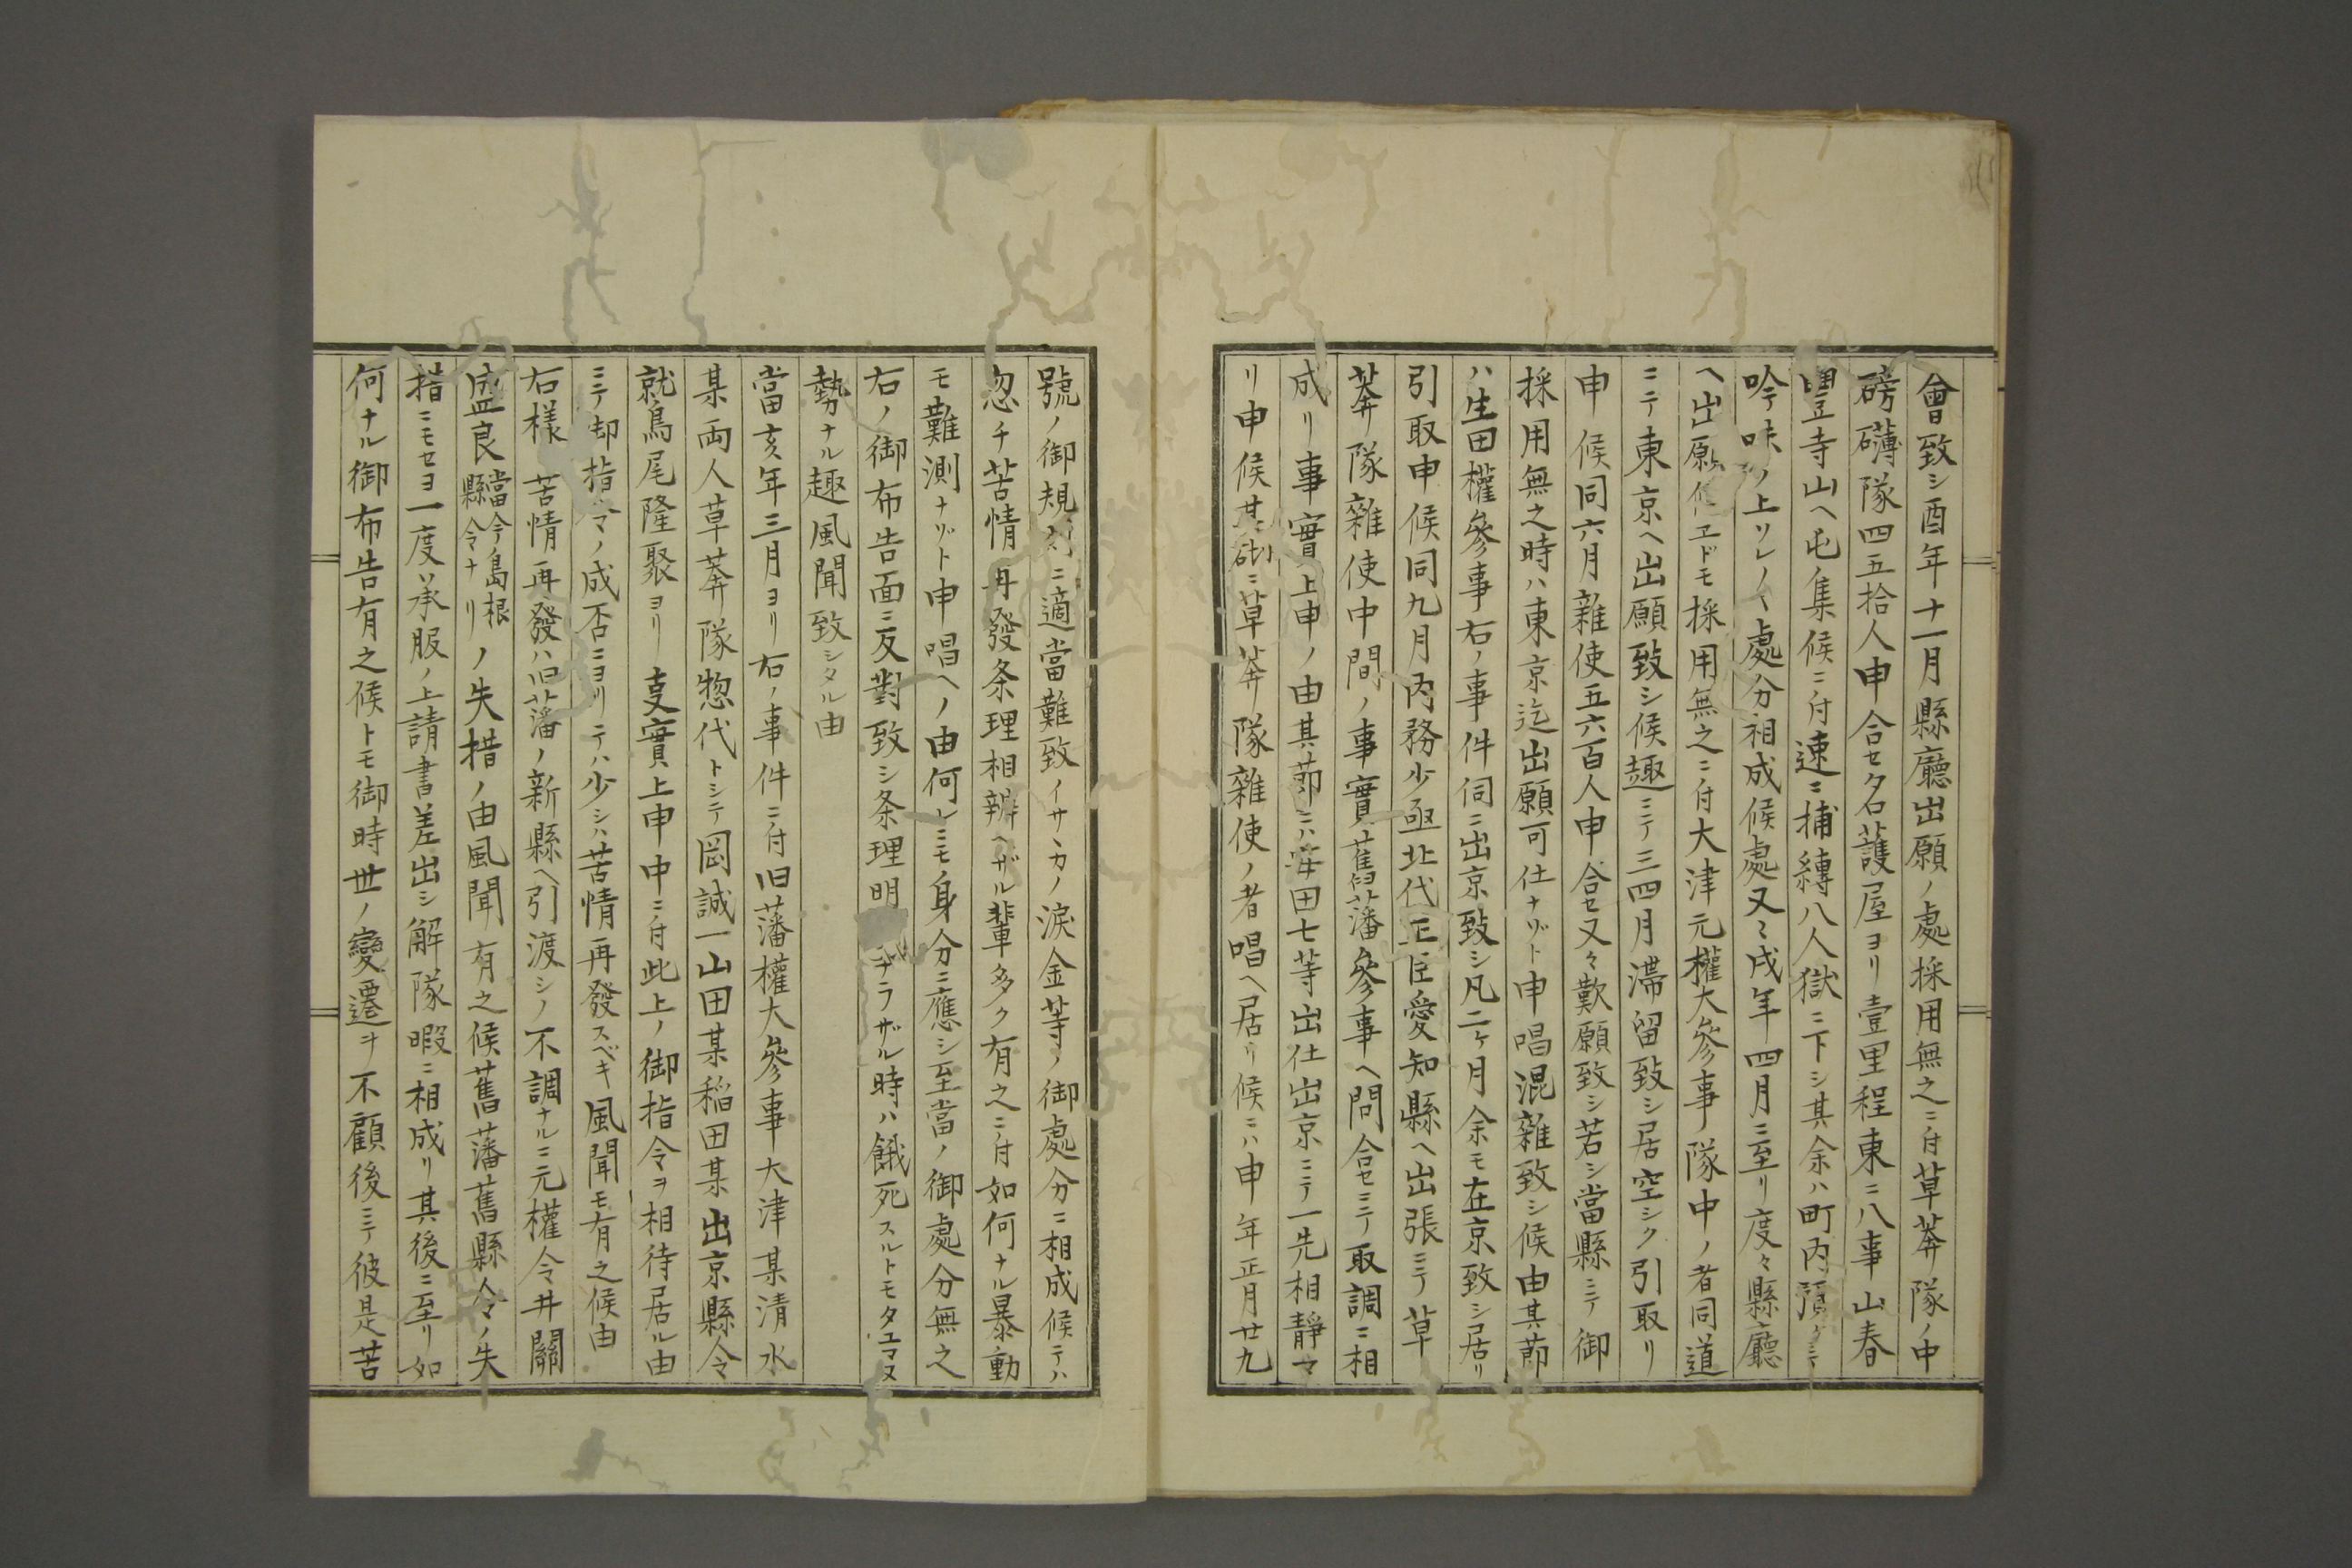 會致シ酉年十一月縣廳出願ノ處採用無之ニ付草莽隊ノ中
磅礴隊四五拾人申合セ名古屋ヨリ壹里程東ニ八事山春
寺山ヘ屯ノ集候ニ付速ニ捕縛八人獄ニ下シ其余ハ町内預ケニテ
吟味ノ上ソレ〳〵處分相成候處又々戌年四月ニ至リ度々縣廳
ヘ出願候エドモ採用無之ニ付大津元權大參事隊中ノ者同道
ニテ東京ヘ出願致シ候趣ニテ三四月滞留致シ居空シク引取リ
申候同六月雜使五六百人申合セ又々歎願致シ若シ當縣ニテ御
採用無之時ハ東京迄出願可仕ナゾト申唱混雜致シ候由其節
ハ生田權參事右ノ事件伺ニ出京致シ凡二ケ月余モ在京致シ居リ
引取申候同九月内務少丞北代正臣愛知縣ヘ出張ニテ草
莽隊雜使中間ノ事實舊藩參事ヘ問合セニテ取調ニ相
成リ事實上申ノ由其節ニハ安田七等出仕出京ニテ一先相靜マ
リ申候其砌ニ草莽隊雜使ノ者唱ヘ居リ候ニハ申年正月廿九
號ノ御規則ニ適當難致イサヽカノ涙金等ノ御處分ニ相成候テハ
忽チ苦情再發条理相辨ヘザル輩多ク有之ニ付如何ナル暴動
モ難測ナゾト申唱ヘノ由何レニモ身分ニ應シ至當ノ御處分無之
右ノ御布告面ニ反對致シ条理明ナラザル時ハ餓死スルトモタユマヌ
勢ナル趣風聞致シタル由
當亥年三月ヨリ右ノ事件ニ付旧藩權大參事大津某清水
某両人草莽隊惣代トシテ岡誠一山田某稲田某出京縣令
就鳥尾隆聚ヨリ事實上申中ニ付此上ノ御指令ヲ相待居ル由
ニテ御指令ノ成否ニヨリテハ少シハ苦情再發スベキ風聞モ有之候由
右樣苦情再發ハ旧藩ノ新縣ヘ引渡シノ不調ナルニ元權令井關
盛良當今島根縣令ナリノ失措ノ由風聞有之候舊藩舊縣令ノ失
措ニモセヨ一度承服ノ上請書差出シ解隊暇ニ相成リ其後ニ至リ如
何ナル御布告有之候トモ御時世ノ變遷ヲ不顧後ニテ彼是苦